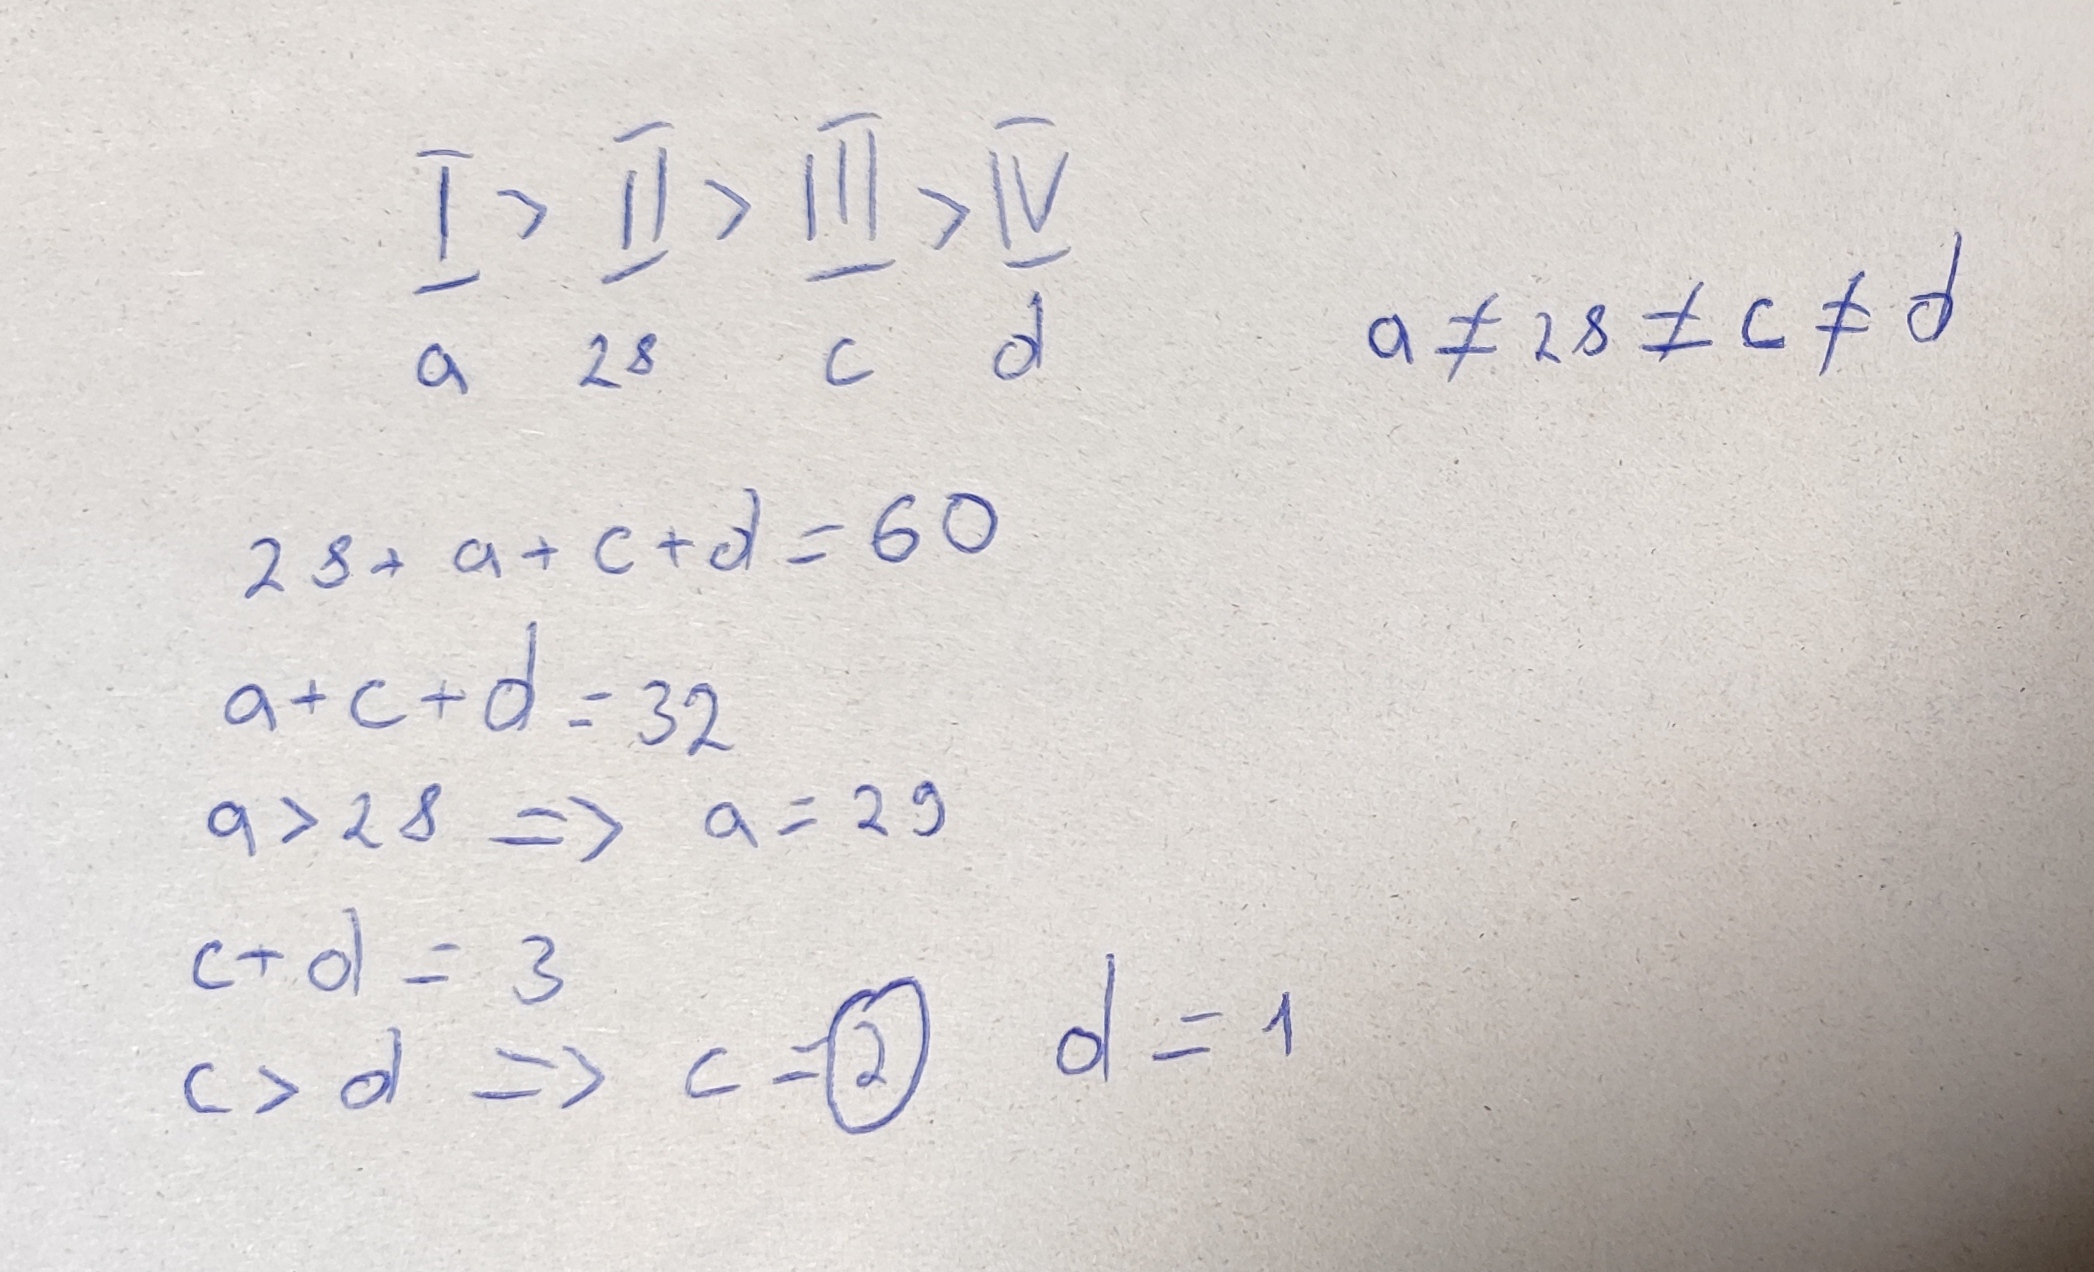 I > II > III > IV
a 28 c d
a ≠ 28 ≠ c ≠ d
28 + a + c + d = 60
a + c + d = 32
a > 28 => a = 29
c + d = 3
c > d => c = 2 d = 1